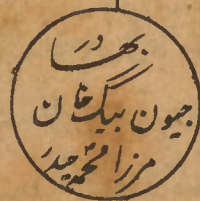 بهادر
جیون بیگ خان
مرزا محمد حیدر